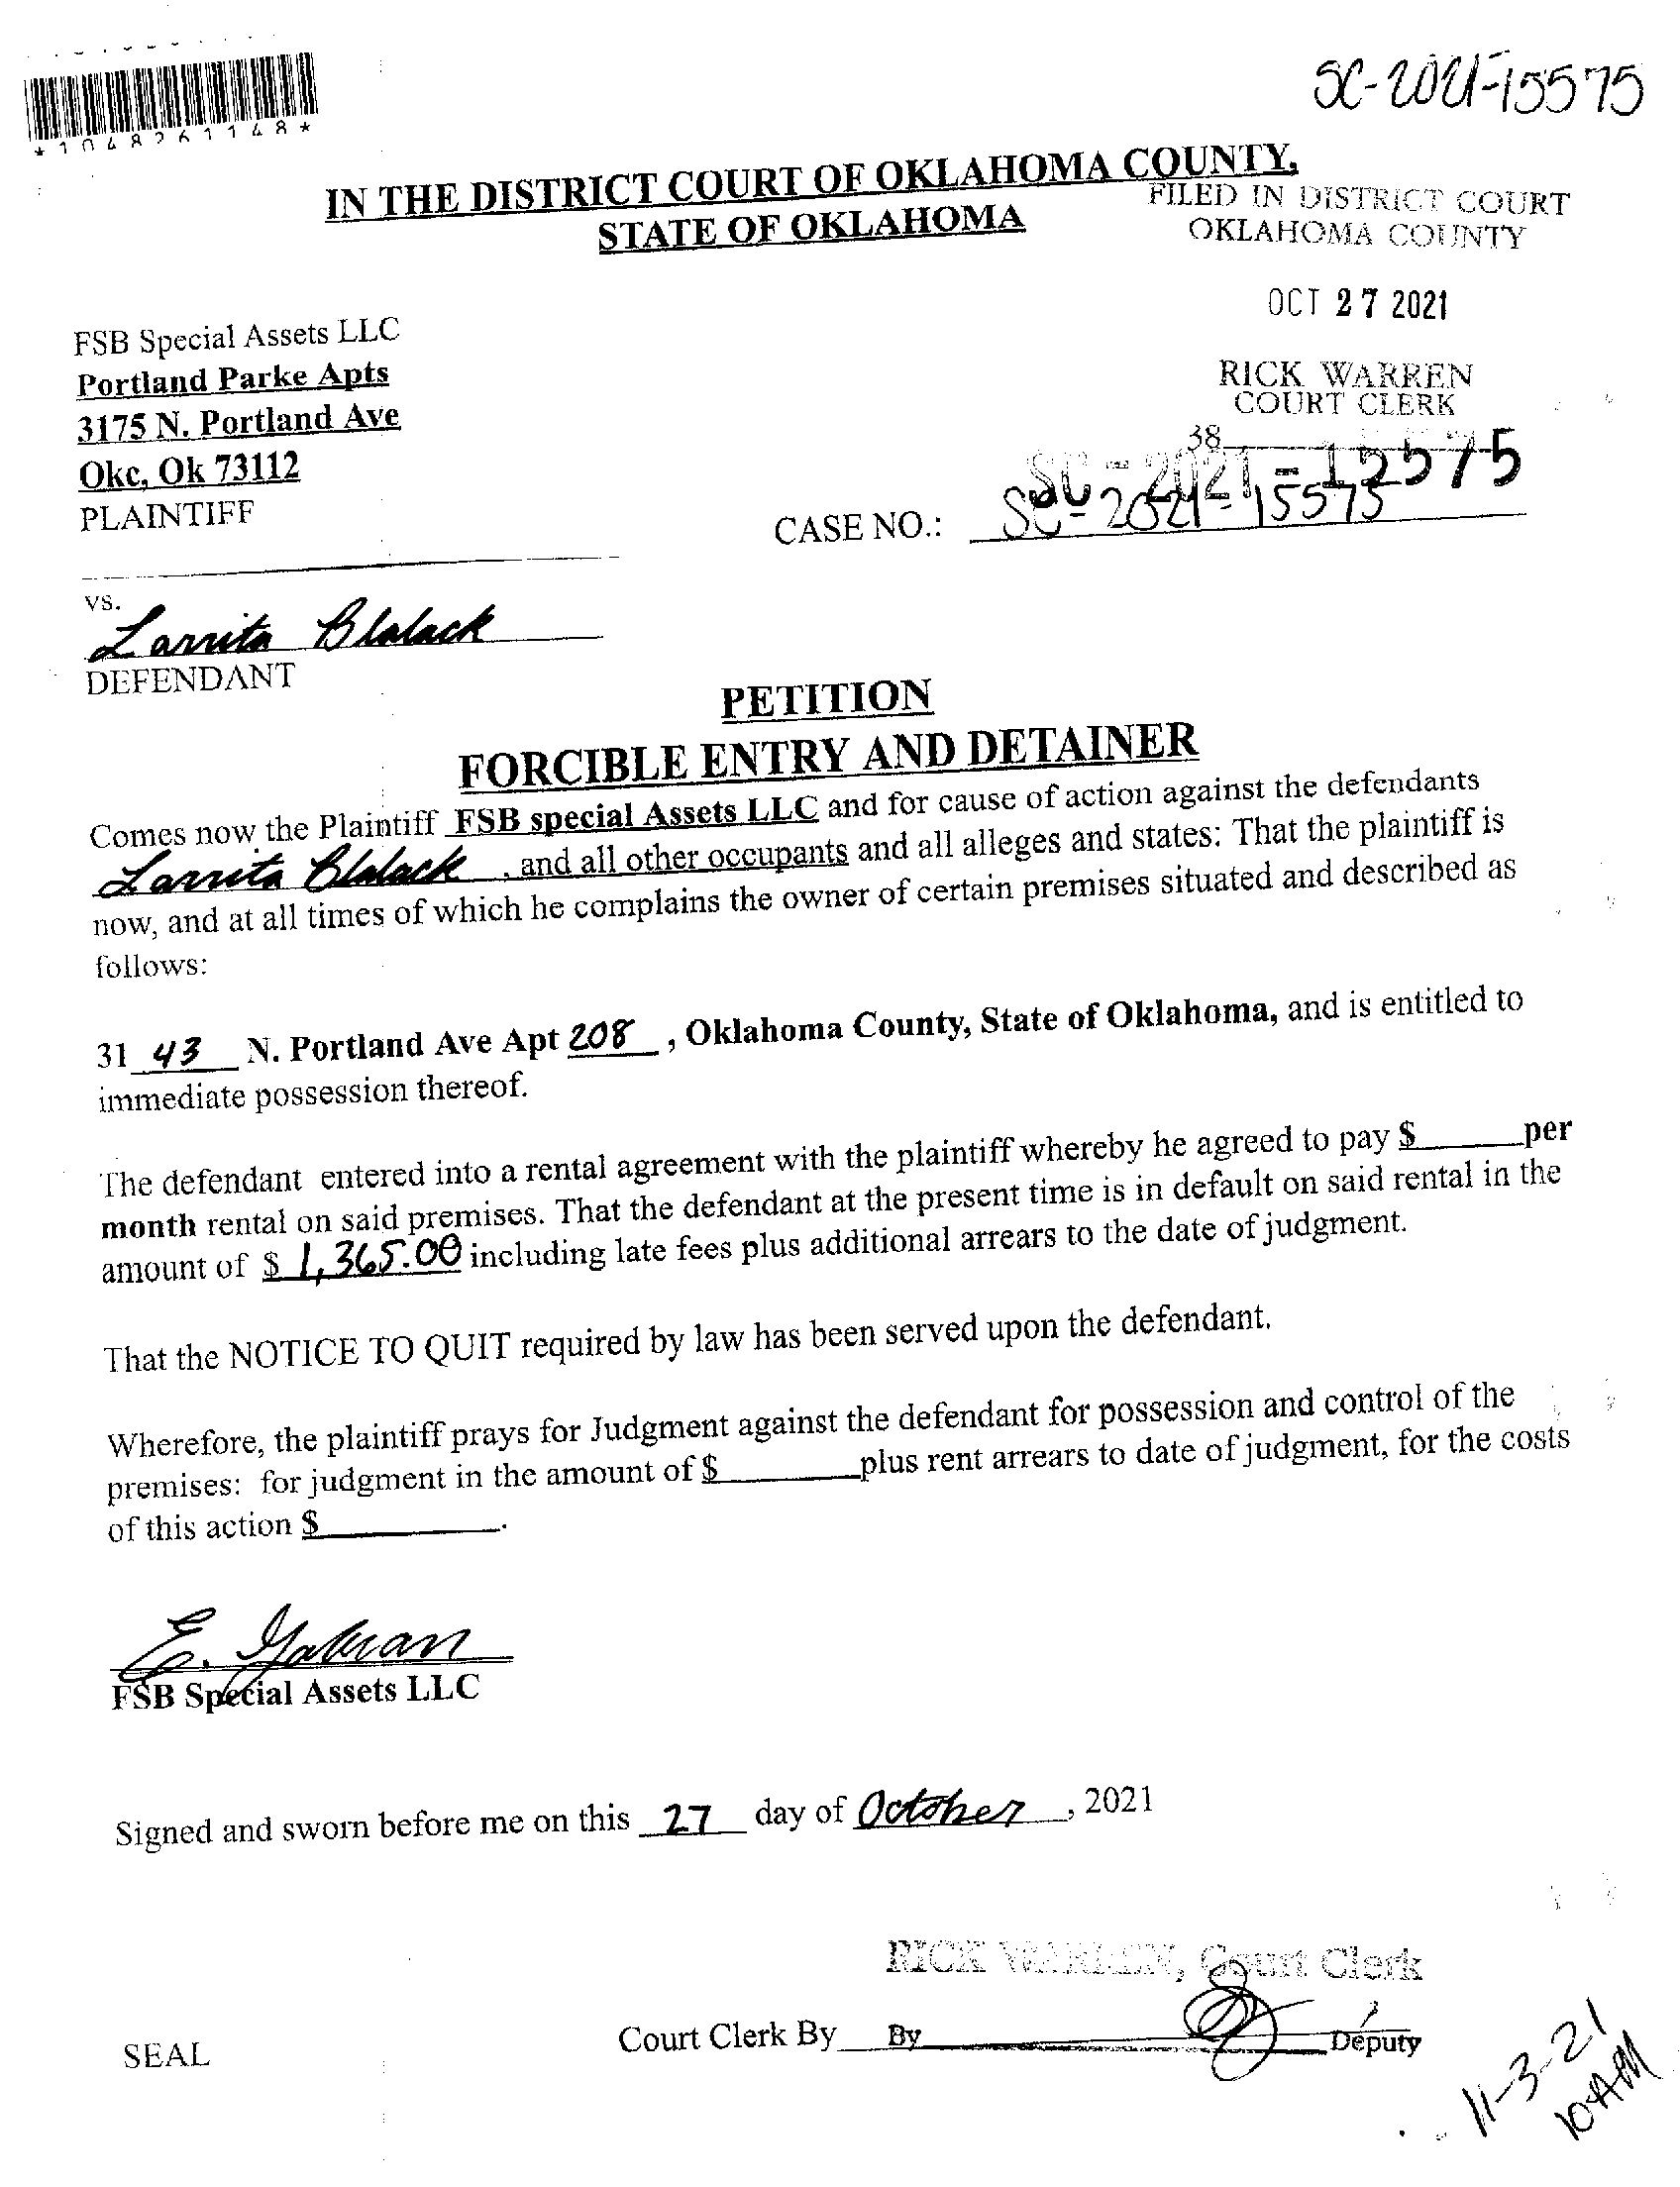 *1048261148*
SC-2021-15575
IN THE DISTRICT COURT OF OKLAHOMA COUNTY,
STATE OF OKLAHOMA
FILED IN DISTRICT COURT
OKLAHOMA COUNTY
OCT 27 2021
RICK WARREN
COURT CLERK
38
FSB Special Assets LLC
Portland Parke Apts
3175 N. Portland Ave
Okc, Ok 73112
PLAINTIFF
CASE NO.: SC-2021-15575
vs.
Larrita Blalack
DEFENDANT
PETITION
FORCIBLE ENTRY AND DETAINER
Comes now the Plaintiff FSB special Assets LLC and for cause of action against the defendants
Larrita Blalack, and all other occupants and all alleges and states: That the plaintiff is
now, and at all times of which he complains the owner of certain premises situated and described as
follows:
31 43 N. Portland Ave Apt 208, Oklahoma County, State of Oklahoma, and is entitled to
immediate possession thereof.
The defendant entered into a rental agreement with the plaintiff whereby he agreed to pay $______per
month rental on said premises. That the defendant at the present time is in default on said rental in the
amount of $ 1,365.00 including late fees plus additional arrears to the date of judgment.
That the NOTICE TO QUIT required by law has been served upon the defendant.
Wherefore, the plaintiff prays for Judgment against the defendant for possession and control of the
premises: for judgment in the amount of $________plus rent arrears to date of judgment, for the costs
of this action $__________.
FSB Special Assets LLC
Signed and sworn before me on this 27 day of October, 2021
RICK WARREN, Court Clerk
Court Clerk By By Deputy
SEAL
11-3-21
10AM